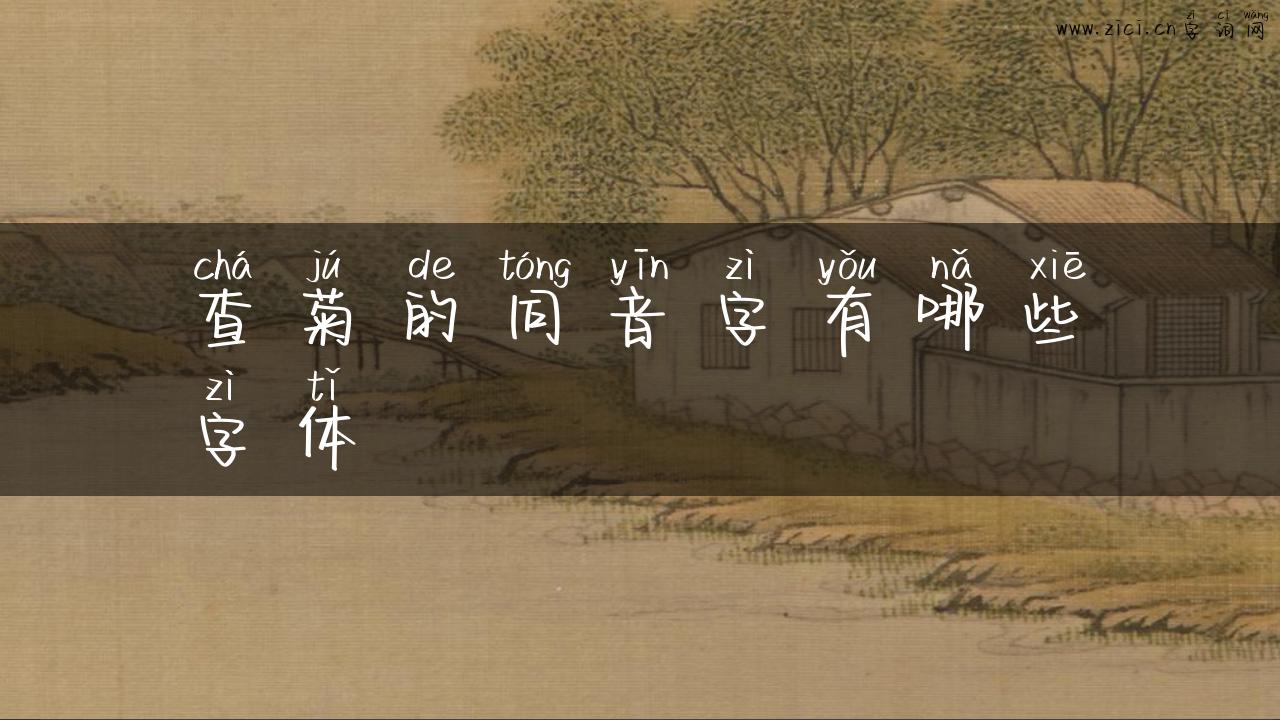 zì cí wǎng
www.zici.cn 字 词 网
chá jú de tóng yīn zì yǒu nǎ xiē
查 菊 的 同 音 字 有 哪 些
zì tǐ
字 体